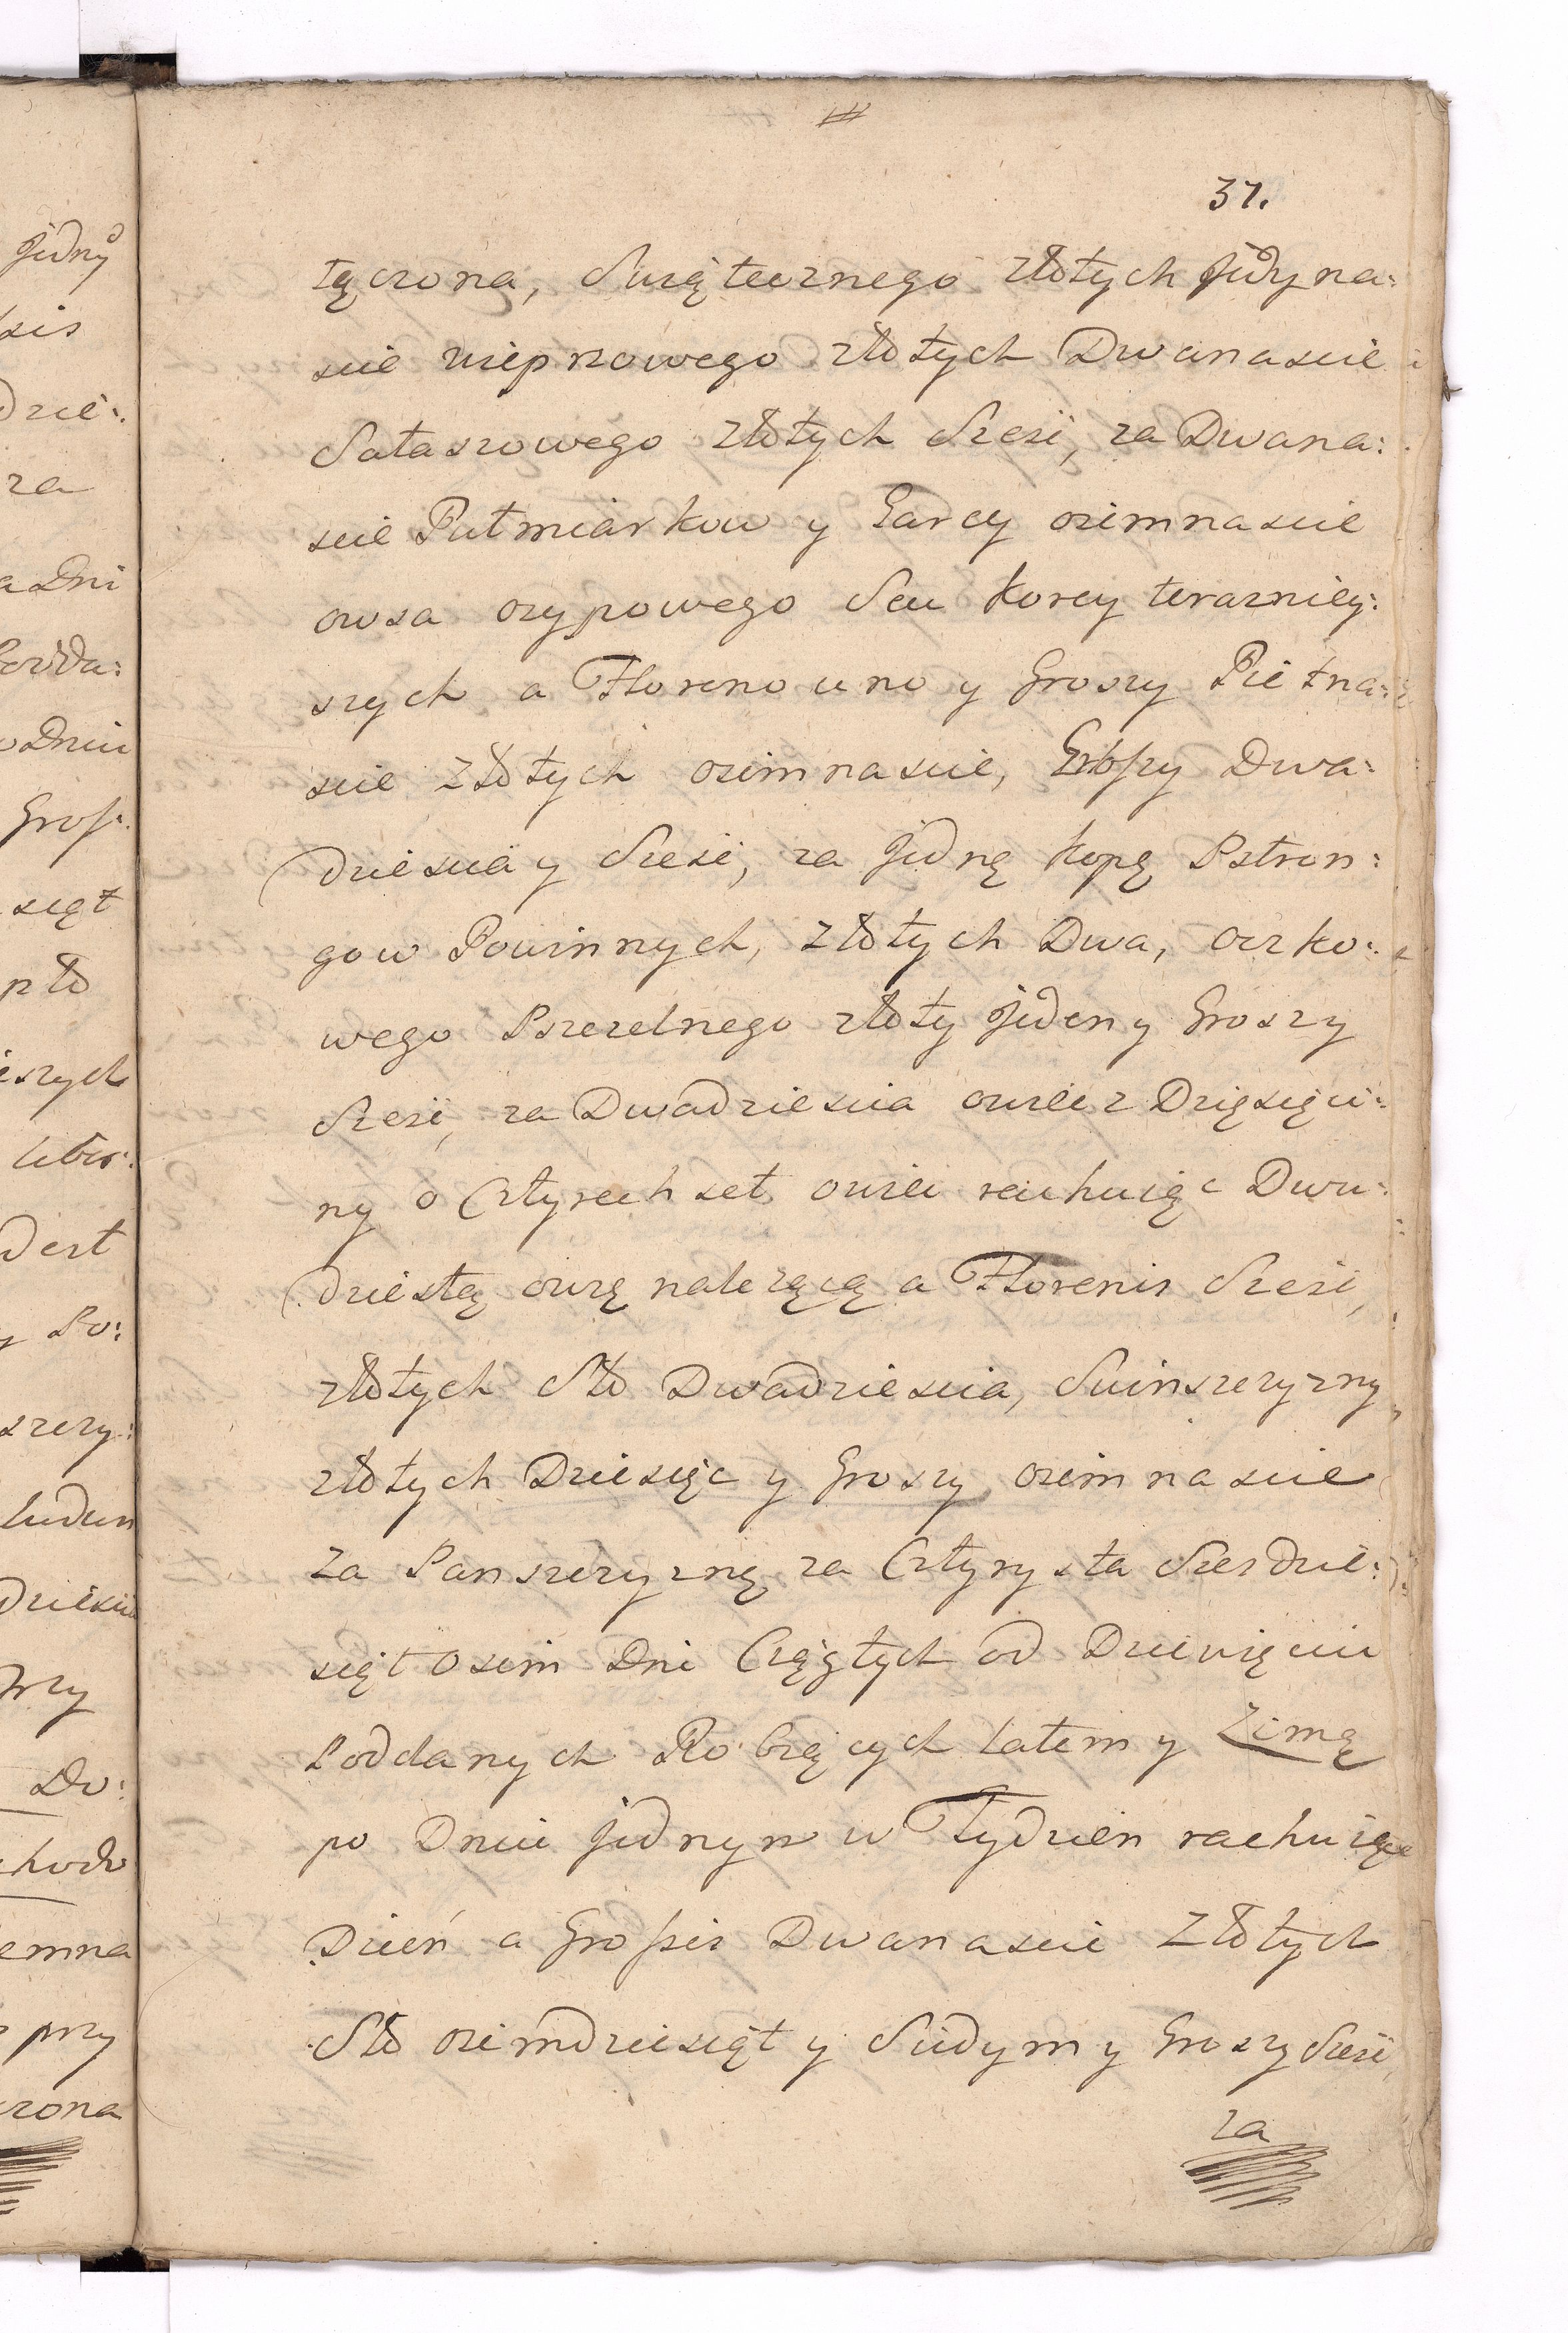 37.
jedny
tączona, Swiątecznego złotych Jedyna:
scie wieprzowego złotych Dwanascie
Sałaszowego złotych Szesć, za Dwana:
scie Pułmiarkow y Garcy osimnascie
owsa osypowego Seu korcy teraznięy:
szych a Floreno uno y Groszy Pietna:
scie złotych osimnascie, Groszy Dwa:
dziescia y Szesć, za Jedną kopę Pstron:
gow Powinnych, złotych Dwa, oczko:
wego Pszczelnego złoty Jeden y Groszy
Szesć, za Dwadziescia owiec z Dzięsięci:
ny o Cztyrech set owiec rachuiąc Dwu:
dziestą owcę należącą a Florenis Szesć,
złotych Sto Dwadziescia, Swinszczyzny
złotych Dziesięc y Groszy osimnascie
za Panszczyznę za Cztyrysta Szesdzie:
siąt Osim Dni Ciągłych od Dziewięciu
Poddanych Robiących latem y zimą
po Dniu Jednym w Tydzien rachuiąc
Dzień a Grossis Dwanascie złotych
Sto osimdziesiąt y Siedym y Groszy Szesć
za
zis
dzie:
za
Dni
Dniu
Gros:
siąt
szych
dest
szczy:
ludun
Trzy
Do:
chodu
emna
przy
czona